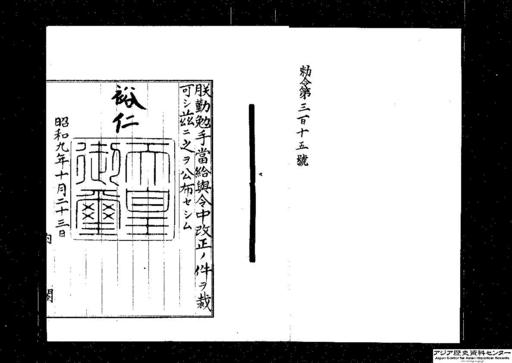 勅令第三百十五號
朕勤勉手當給與令中改正ノ件ヲ裁
可シ茲ニ之ヲ公布セシム
裕仁
天皇
御璽
昭和九年十月二十三日
内閣
アジア歴史資料センター
Japan Center for Asian Historical Records